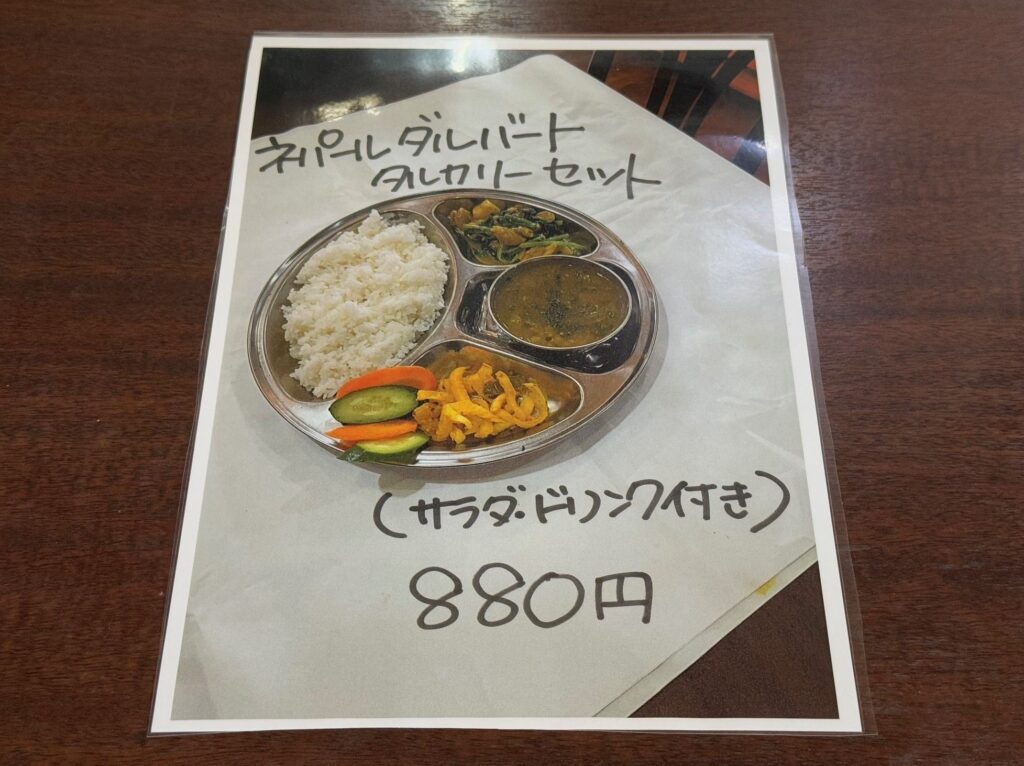 ネパールダルバート
タルカリーセット
(サラダ・ドリンク付き)
880円